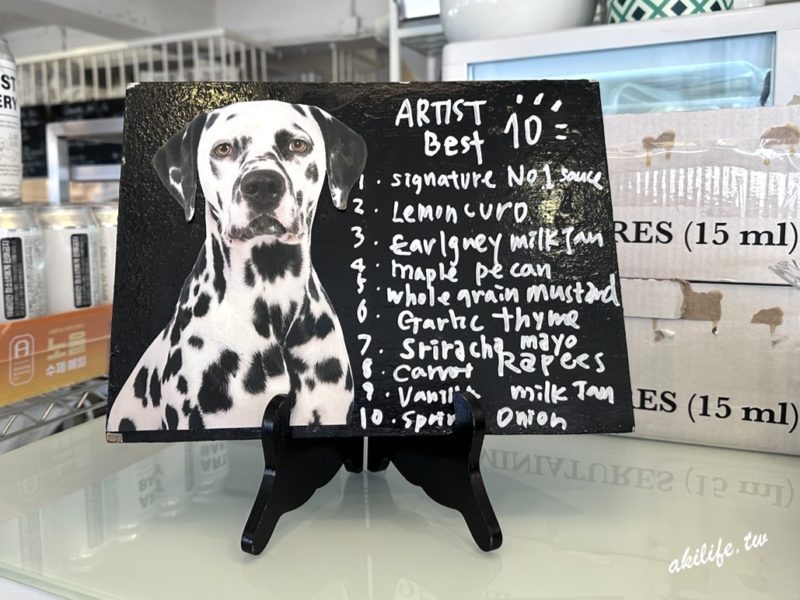 ARTIST
Best 10
1. signature No1 sauce
2. Lemon curd
3. Earlgrey milk Jam
4. maple pecan
5. whole grain mustard
6. Garlic thyme
7. Sriracha mayo
8. carrot Rapees
9. Vanilla milk Jam
10. Onion
RES (15 ml)
ES (15 ml)
ST
ERY
노을
수제에일
akilife.tw